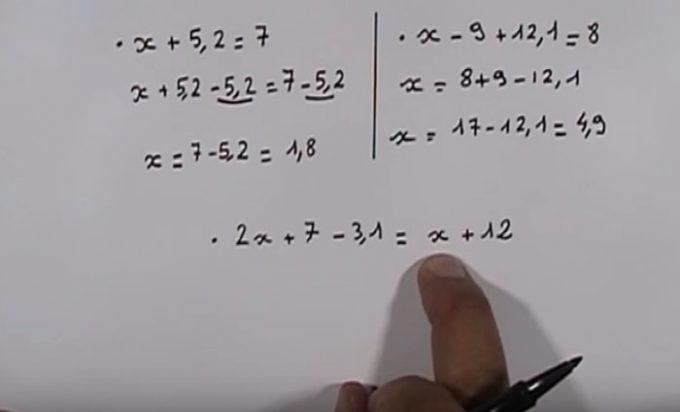 · x + 5,2 = 7
x + 5,2 - 5,2 = 7 - 5,2
x = 7 - 5,2 = 1,8
· x - 9 + 12,1 = 8
x = 8 + 9 - 12,1
x = 17 - 12,1 = 4,9
· 2x + 7 - 3,1 = x + 12